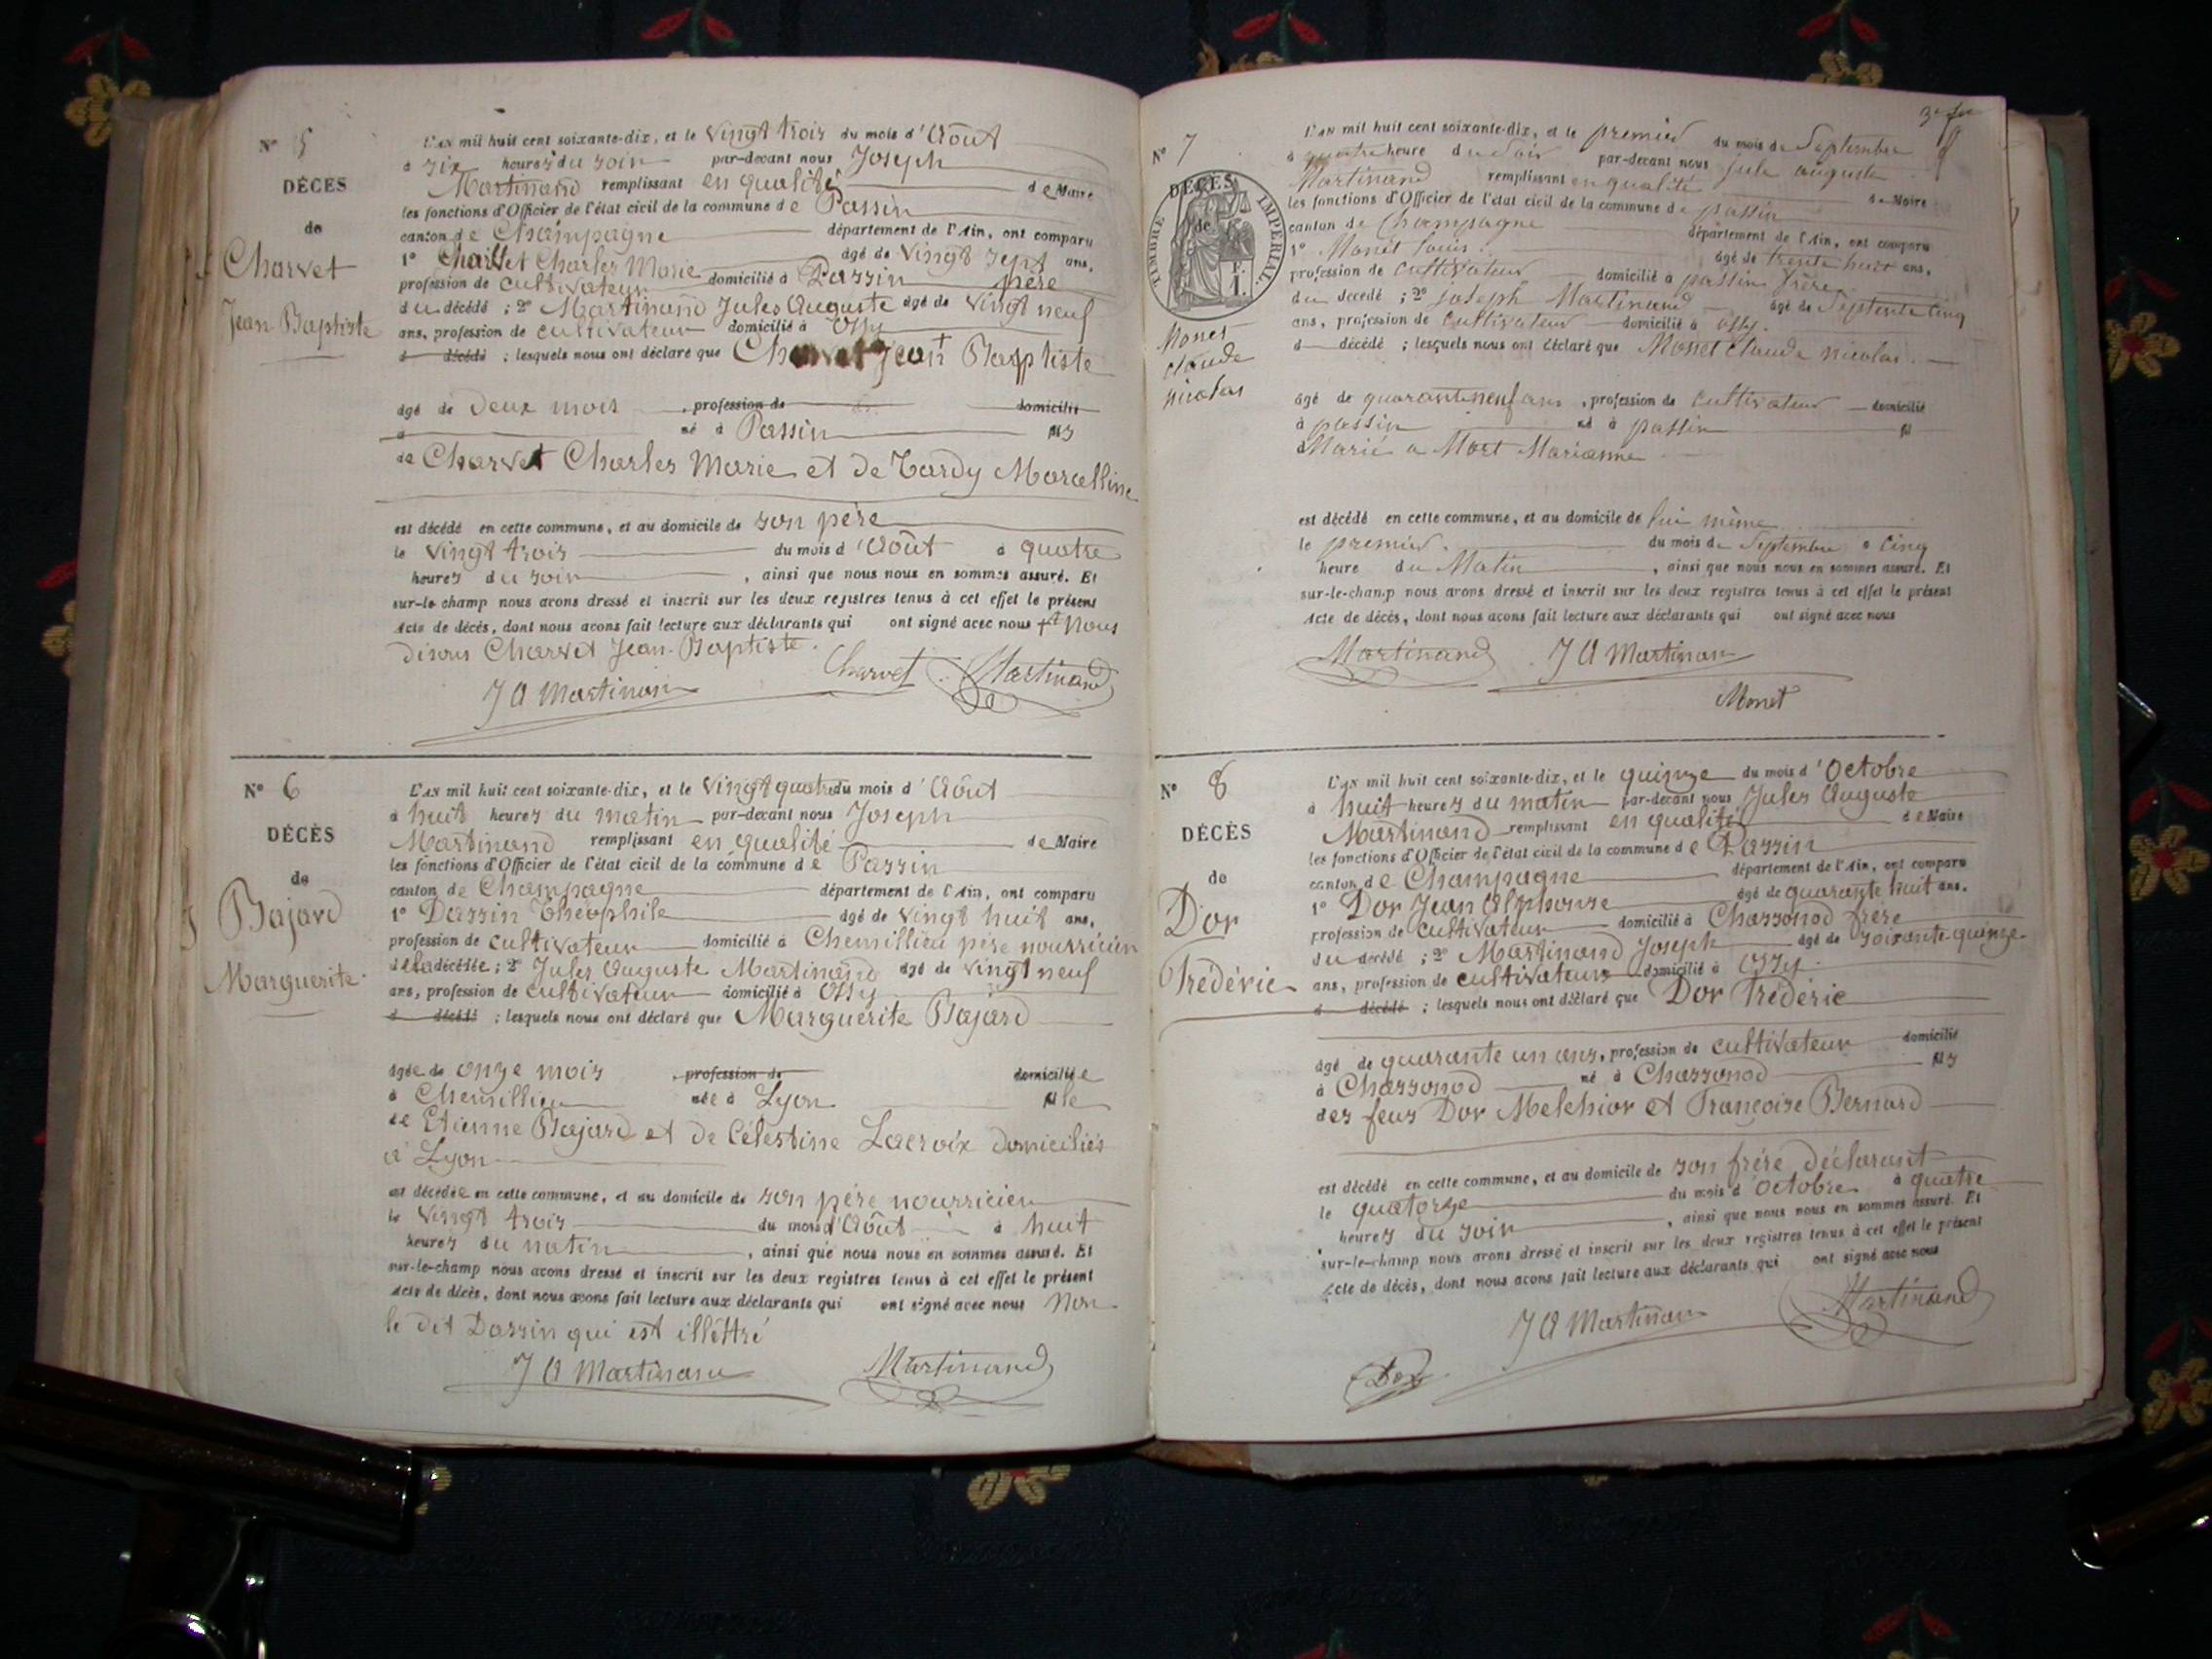 N° 5
DÉCÈS
de
Charvet
Jean-Baptiste
L'AN mil huit cent soixante-dix, et le vingt trois du mois d'Août
à six heures du soir par-devant nous Joseph
Martinand remplissant en qualité de Maire
les fonctions d'Officier de l'état civil de la commune de Passin
canton de Champagne département de l'Ain, ont comparu
1° Charvet Charles Marie âgé de vingt sept ans,
profession de cultivateur domicilié à Passin père
du décédé ; 2° Martinand Jules Auguste âgé de vingt neuf
ans, profession de cultivateur domicilié à Ossy
d décédé ; lesquels nous ont déclaré que Charvet Jean Baptiste
âgé de deux mois , profession de domicilié
à né à Passin fils
de Charvet Charles Marie et de Tardy Marcelline
est décédé en cette commune, et au domicile de son père
le vingt trois du mois d'Août à quatre
heures du soir , ainsi que nous nous en sommes assuré. Et
sur-le champ nous avons dressé et inscrit sur les deux registres tenus à cet effet le présent
acte de décès, dont nous avons fait lecture aux déclarants qui ont signé avec nous + nous
disons Charvet Jean-Baptiste.
Charvet Martinand
J A Martinand
N° 6
DÉCÈS
de
Bajard
Marguerite
L'AN mil huit cent soixante-dix, et le vingt quatre du mois d'Août
à huit heures du matin par-devant nous Joseph
Martinand remplissant en qualité de Maire
les fonctions d'Officier de l'état civil de la commune de Passin
canton de Champagne département de l'Ain, ont comparu
1° Dassin Théophile âgé de vingt huit ans,
profession de cultivateur domicilié à Chemillieu père nourricier
de la décédée ; 2° Jules Auguste Martinand âgé de vingt neuf
ans, profession de cultivateur domicilié à Ossy
d décédé ; lesquels nous ont déclaré que Marguerite Bajard
âgée de onze mois , profession de domiciliée
à Chemillieu née à Lyon fille
de Etienne Bajard et de Célestine Lacroix domiciliés
à Lyon
est décédée en cette commune, et au domicile de son père nourricier
le vingt trois du mois d'Août à huit
heures du matin , ainsi que nous nous en sommes assuré. Et
sur-le-champ nous avons dressé et inscrit sur les deux registres tenus à cet effet le présent
acte de décès, dont nous avons fait lecture aux déclarants qui ont signé avec nous Non
le dit Dassin qui est illêttré
J A Martinand Martinand
N° 7
DÉCÈS
de
TIMBRE IMPÉRIAL
F.
1.
Monet
claude
nicolas
L'AN mil huit cent soixante-dix, et le premier du mois de Septembre
à quatre heure du soir par-devant nous jule auguste
Martinand remplissant en qualité de Maire
les fonctions d'Officier de l'état civil de la commune de passin
canton de Champagne département de l'Ain, ont comparu
1° Monet louis âgé de trente huit ans,
profession de cultivateur domicilié à passin frère
du décédé ; 2° joseph Martinand âgé de Septente cinq
ans, profession de cultivateur domicilié à ossy.
d décédé ; lesquels nous ont déclaré que Monet claude nicolas.
âgé de quarante neuf ans , profession de cultivateur domicilié
à passin né à passin fil
d Marié a Mort Marianne
est décédé en cette commune, et au domicile de lui même
le premier. du mois de Septembre à cinq
heure du Matin , ainsi que nous nous en sommes assuré. Et
sur-le-champ nous avons dressé et inscrit sur les deux registres tenus à cet effet le présent
acte de décès, dont nous avons fait lecture aux déclarants qui ont signé avec nous
Martinand J A Martinand
Monet
N° 8
DÉCÈS
de
Dor
Frédéric
L'AN mil huit cent soixante-dix, et le quinze du mois d'Octobre
à huit heures du matin par-devant nous Jules Auguste
Martinand remplissant en qualité de Maire
les fonctions d'Officier de l'état civil de la commune de Passin
canton de Champagne département de l'Ain, ont comparu
1° Dor Jean Alphonse âgé de quarante huit ans,
profession de cultivateur domicilié à Chassonod frère
du décédé ; 2° Martinand Joseph âgé de soixante quinze
ans, profession de cultivateur domicilié à Ossy.
d décédé ; lesquels nous ont déclaré que Dor Frédéric
âgé de quarante un ans, profession de cultivateur domicilié
à Chassonod né à Chassonod fils
des feus Dor Melchior et Françoise Bernard
est décédé en cette commune, et au domicile de son frère déclarant
le quatorze du mois d'Octobre à quatre
heures du soir , ainsi que nous nous en sommes assuré. Et
sur-le-champ nous avons dressé et inscrit sur les deux registres tenus à cet effet le présent
acte de décès, dont nous avons fait lecture aux déclarants qui ont signé avec nous
J A Martinand Martinand
Dor